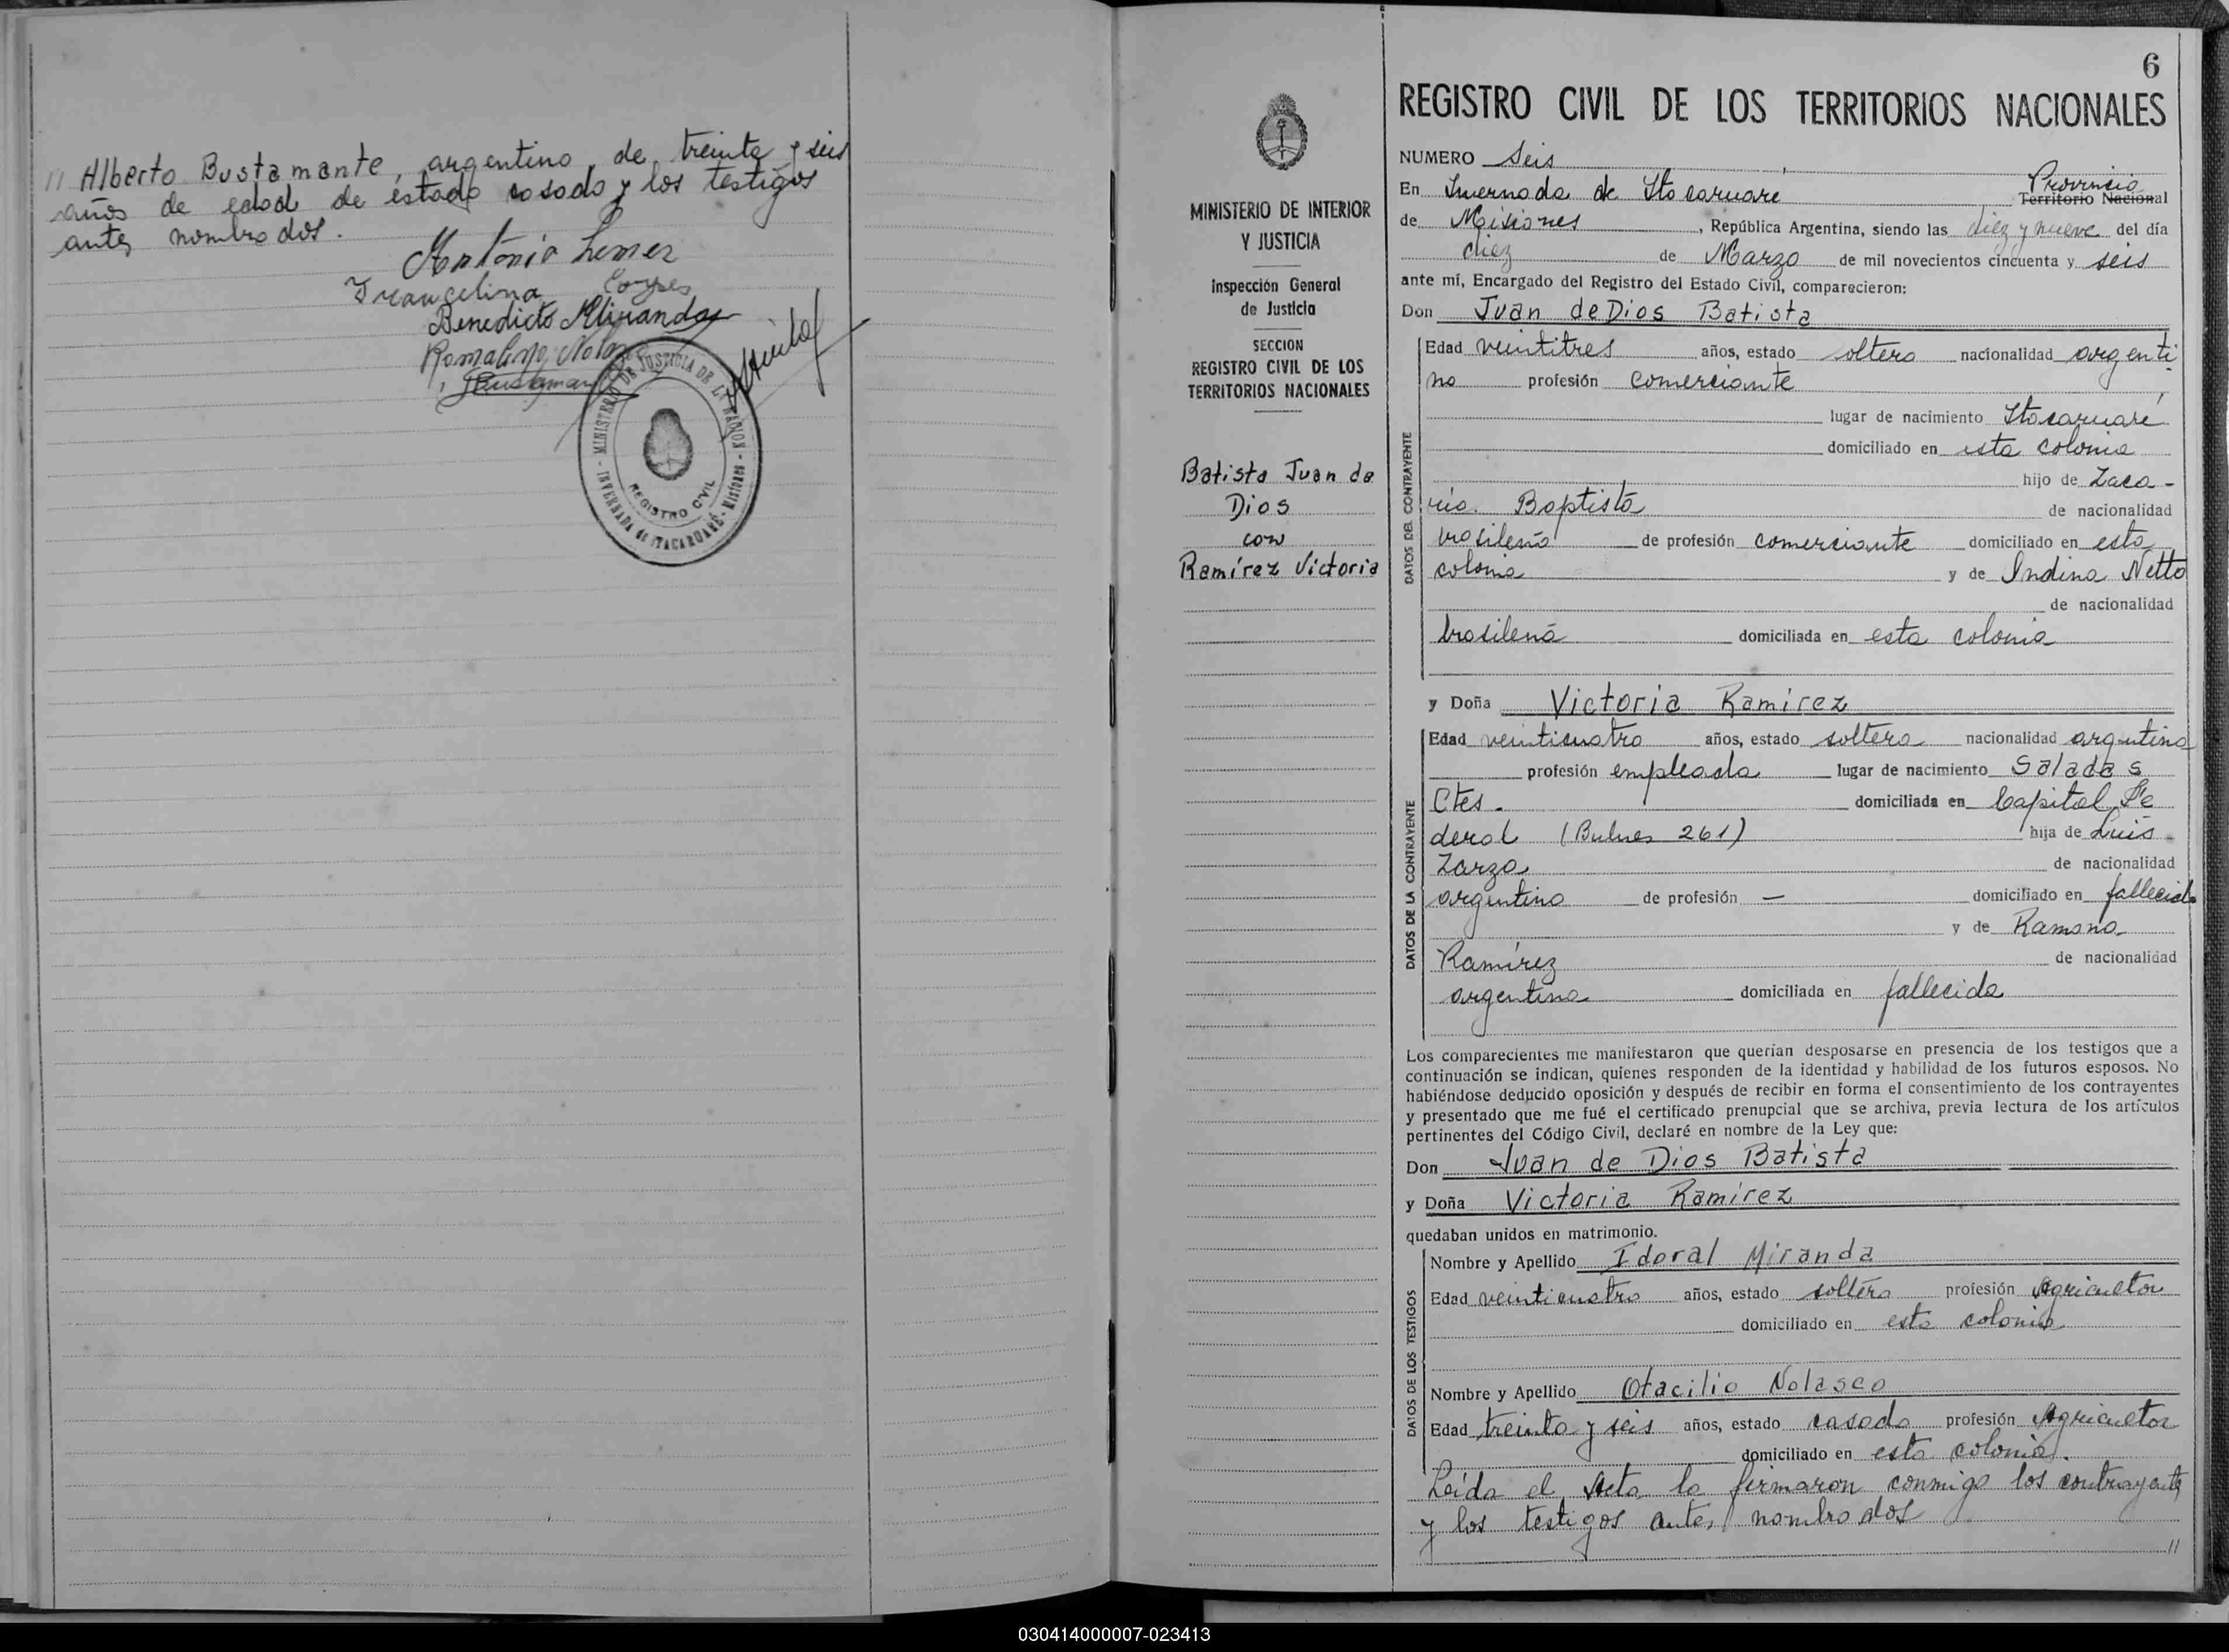 11 Alberto Bustamante, argentino, de treinta y seis
años de edad de estado casado y los testigos
antes nombrados.
Antonio
Benedicto Miranda
MINISTERIO DE JUSTICIA DE LA NACION - INVERNADA de ITACARUARÉ - Misiones -
REGISTRO CIVIL
6
REGISTRO CIVIL DE LOS TERRITORIOS NACIONALES
MINISTERIO DE INTERIOR
Y JUSTICIA
Inspección General
de Justicia
SECCION
REGISTRO CIVIL DE LOS
TERRITORIOS NACIONALES
Batista Juan de
Dios
con
Ramírez Victoria
NUMERO Seis
Provincia
En Invernada de Itacaruare Territorio Nacional
de Misiones, República Argentina, siendo las diez y nueve del día
diez de Marzo de mil novecientos cincuenta y seis
ante mí, Encargado del Registro del Estado Civil, comparecieron:
Don Juan de Dios Batista
DATOS DEL CONTRAYENTE
Edad veintitres años, estado soltero nacionalidad argenti
no profesión comerciante
lugar de nacimiento Itacaruaré
domiciliado en esta colonia
hijo de Zaca-
rio. Baptista de nacionalidad
brasileña de profesión comerciante domiciliado en esta
colonia y de Indina Netto
de nacionalidad
brasilená domiciliada en esta colonia
y Doña Victoria Ramírez
DATOS DE LA CONTRAYENTE
Edad veinticuatro años, estado soltera nacionalidad argentina
profesión empleada lugar de nacimiento Saladas
Ctes. domiciliada en Capital Fe
deral (Bulnes 261) hija de Luis
Zarza de nacionalidad
argentino de profesión — domiciliado en fallecido
y de Ramona
Ramírez de nacionalidad
argentina domiciliada en fallecida
Los comparecientes me manifestaron que querían desposarse en presencia de los testigos que a
continuación se indican, quienes responden de la identidad y habilidad de los futuros esposos. No
habiéndose deducido oposición y después de recibir en forma el consentimiento de los contrayentes
y presentado que me fué el certificado prenupcial que se archiva, previa lectura de los artículos
pertinentes del Código Civil, declaré en nombre de la Ley que:
Don Juan de Dios Batista
y Doña Victoria Ramírez
quedaban unidos en matrimonio.
DATOS DE LOS TESTIGOS
Nombre y Apellido Idoral Miranda
Edad veinticuatro años, estado soltero profesión Agricultor
domiciliado en esta colonia
Nombre y Apellido Otacilio Nolasco
Edad treinta y seis años, estado casado profesión Agricultor
domiciliado en esta colonia.
Leída el Acta la firmaron conmigo los contrayentes
y los testigos antes nombrados
11
030414000007-023413